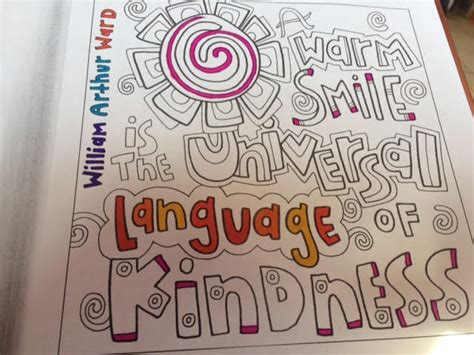 A
WARM
SMiLE
iS
THE
UNiVERSAL
LANGUAGE
OF
KiNDNESS
William Arthur Ward